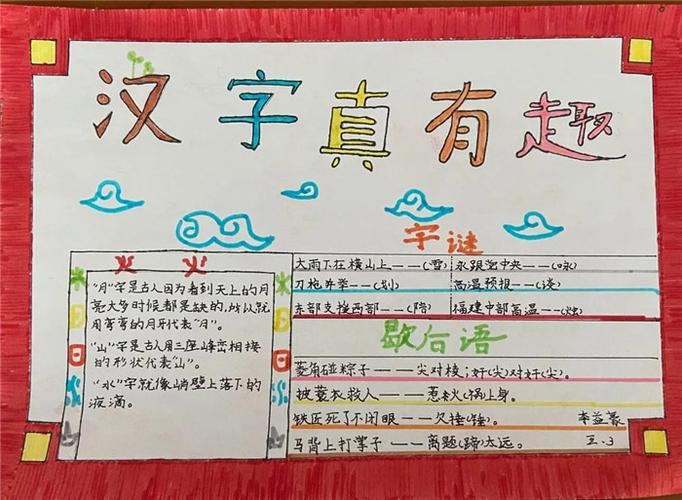 汉字真有趣
字谜
大雨下在横山上——(雪) 永跟党中央——(咏)
刀枪并举——(划) 高温预报——(谈)
东部支援西部—— 福建中部高温——(烛)
歇后语
菱角碰粽子———尖对棱;奸(尖)对奸(尖)。
披蓑衣救人———惹火(祸)上身。
铁匠死了不闭眼——欠捶(锤)。 李益豪
马背上打掌子——离题(蹄)太远。 五.3
火 火
"月"字是古人因为看到天上的月
亮大多时候都是缺的,所以就
用弯弯的月牙代表"月"。
"山"字是古人用三座峰峦相接
的形状代表"山"。
"水"字就像峭壁上落下的
液滴。